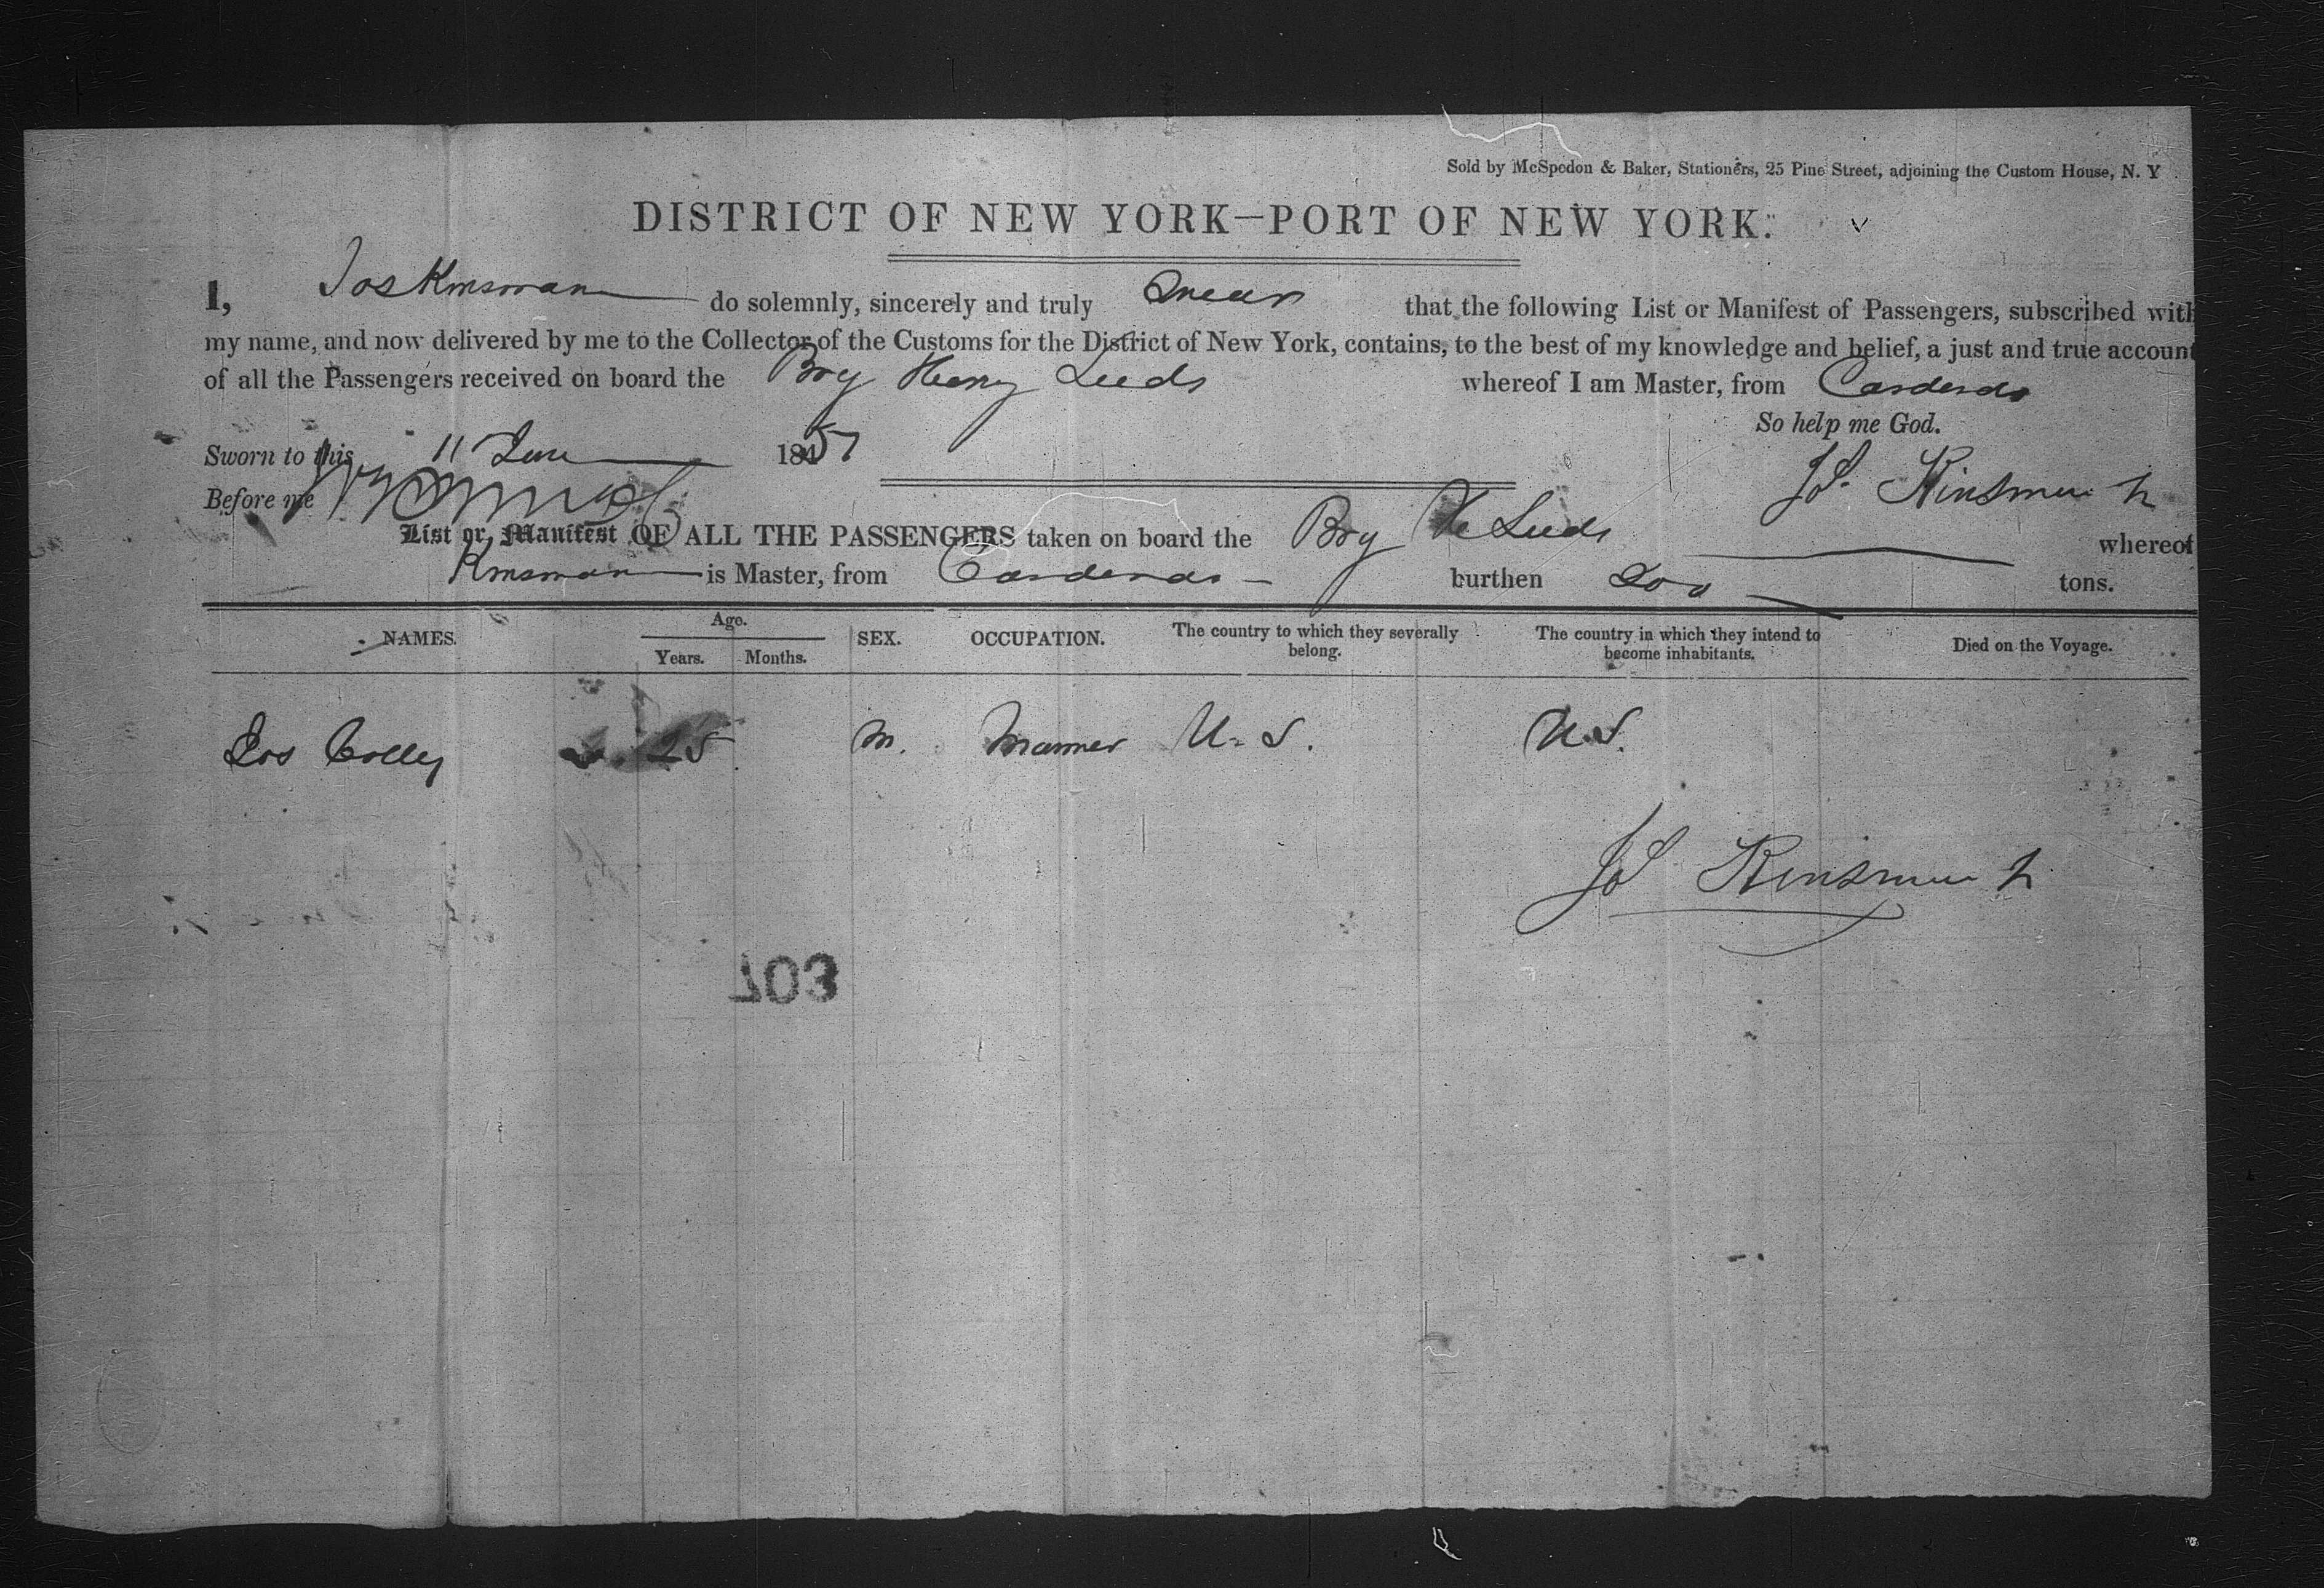 Sold by McSpedon & Baker, Stationers, 25 Pine Street, adjoining the Custom House, N. Y
DISTRICT OF NEW YORK—PORT OF NEW YORK.
I, Jos Kinsman do solemnly, sincerely and truly Swear that the following List or Manifest of Passengers, subscribed with
my name, and now delivered by me to the Collector of the Customs for the District of New York, contains, to the best of my knowledge and belief, a just and true account
of all the Passengers received on board the Brg Henry Leeds whereof I am Master, from Cardenas
So help me God.
Sworn to this 11 June 1851
Jos. Kinsman Jr
Before me
List or Manifest OF ALL THE PASSENGERS taken on board the Brg H Leeds whereof
Kinsman is Master, from Cardenas burthen 200 tons.
NAMES. Age. Years. Months. SEX. OCCUPATION. The country to which they severally belong. The country in which they intend to become inhabitants. Died on the Voyage.
Jos Colley 25 M. Mariner U. S. U.S.
Jos Kinsman Jr
703